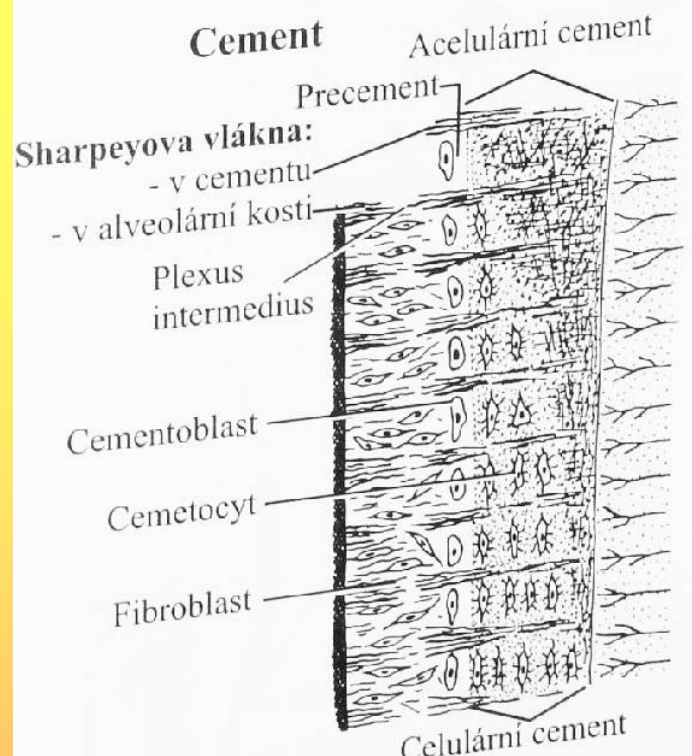 Cement
Acelulární cement
Precement
Sharpeyova vlákna:
- v cementu
- v alveolární kosti
Plexus
intermedius
Cementoblast
Cemetocyt
Fibroblast
Celulární cement